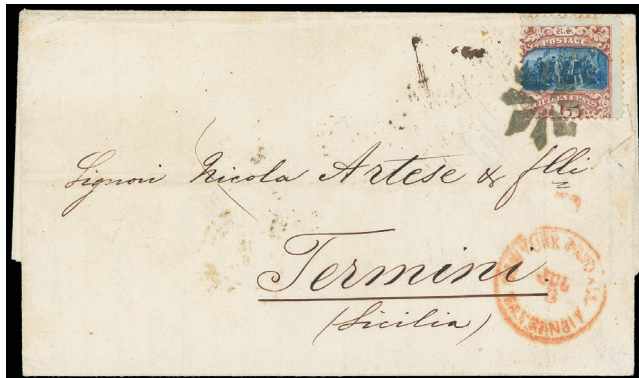 U.S.
POSTAGE
FIFTEEN CENTS
15
Signori Nicola Artese & flli
Termini
(Sicilia)
NEW YORK PAID ALL
JUL
BR. TRANSIT